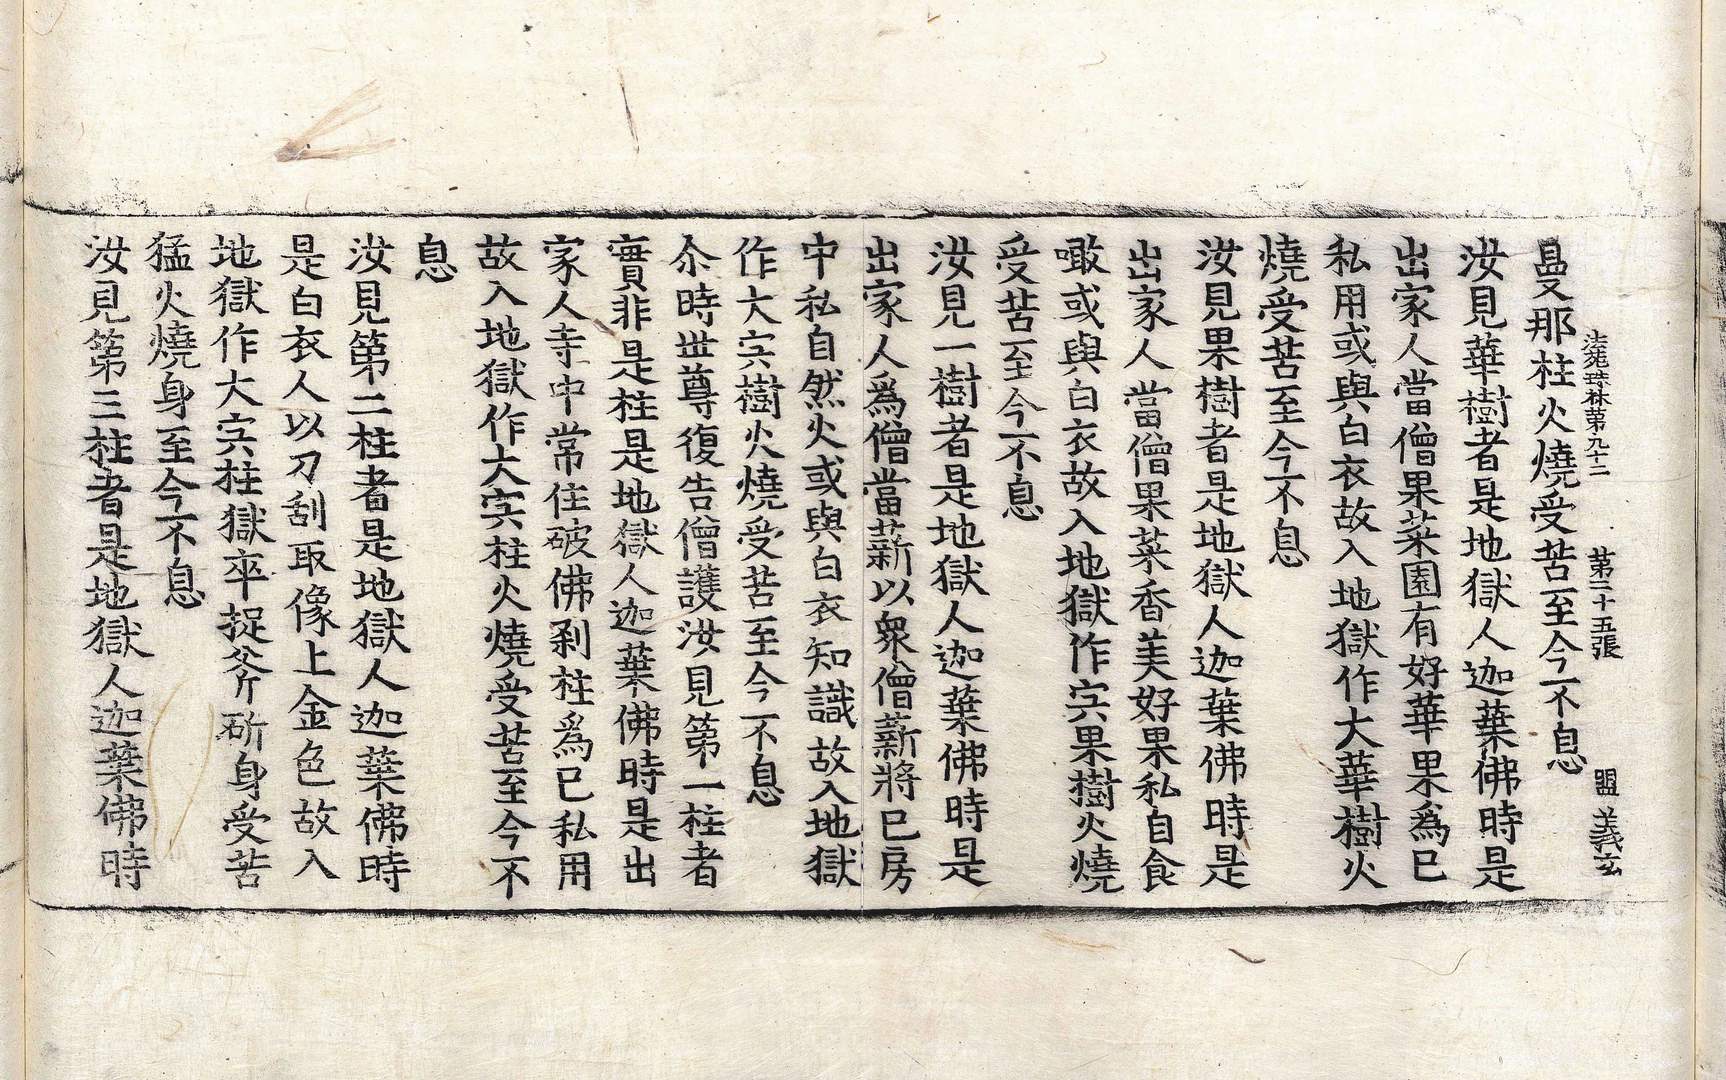 法苑珠林第九十二 第二十五張 盟 義玄
曼那柱火燒受苦至今不息
汝見華樹者是地獄人迦葉佛時是
出家人當僧果菜園有好華果爲已
私用或與白衣故入地獄作大華樹火
燒受苦至今不息
汝見果樹者是地獄人迦葉佛時是
出家人當僧果菜香美好果私自食
噉或與白衣故入地獄作宍果樹火燒
受苦至今不息
汝見一樹者是地獄人迦葉佛時是
出家人爲僧當薪以衆僧薪將已房
中私自然火或與白衣知識故入地獄
作大宍樹火燒受苦至今不息
尒時世尊復告僧護汝見第一柱者
實非是柱是地獄人迦葉佛時是出
家人寺中常住破佛刹柱爲已私用
故入地獄作大宍柱火燒受苦至今不
息
汝見第二柱者是地獄人迦葉佛時
是白衣人以刀刮取像上金色故入
地獄作大宍柱獄卒捉斧斫身受苦
猛火燒身至今不息
汝見第三柱者是地獄人迦葉佛時